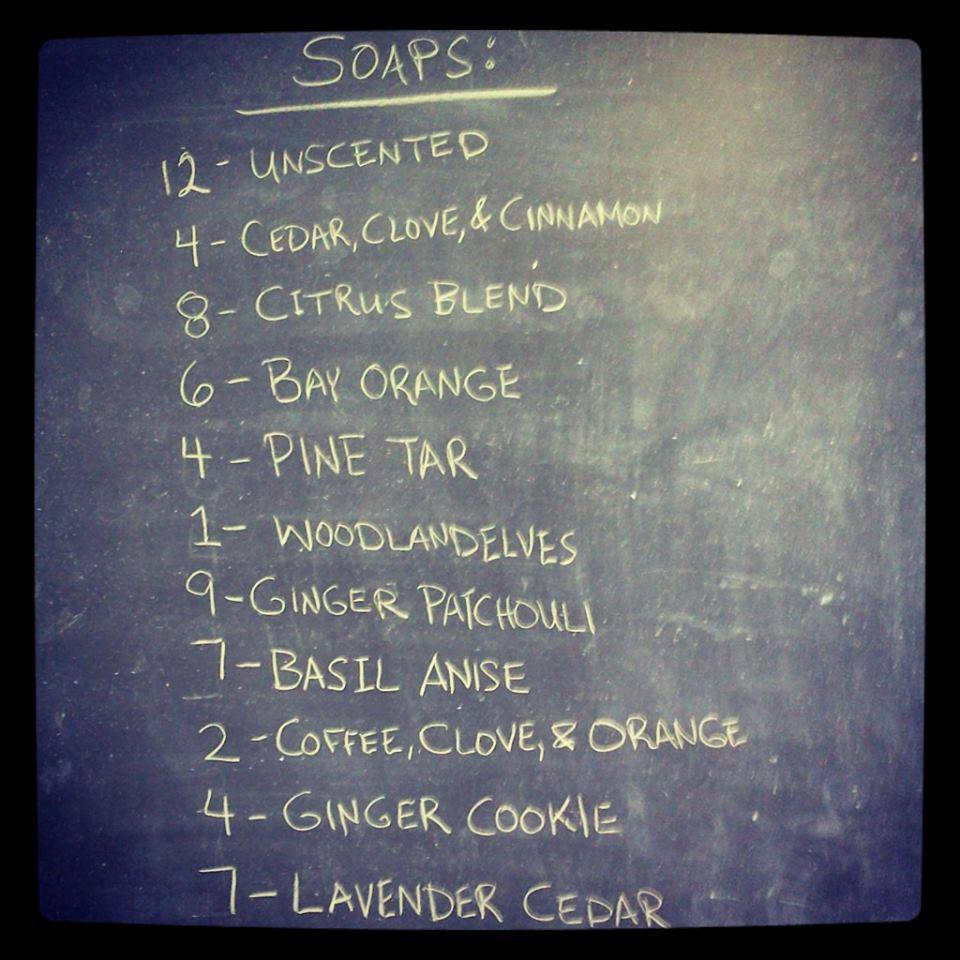 SOAPS:
12 - UNSCENTED
4 - CEDAR, CLOVE, & CINNAMON
8 - CITRUS BLEND
6 - BAY ORANGE
4 - PINE TAR
1 - WOODLANDELVES
9 - GINGER PATCHOULI
7 - BASIL ANISE
2 - COFFEE, CLOVE, & ORANGE
4 - GINGER COOKIE
7 - LAVENDER CEDAR